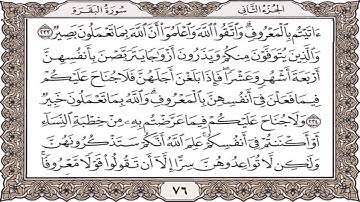 الجزء الثاني
سورة البقرة
ءَاتَيْتُم بِالْمَعْرُوفِ وَاتَّقُوا اللَّهَ وَاعْلَمُوا أَنَّ اللَّهَ بِمَا تَعْمَلُونَ بَصِيرٌ ٢٣٣
وَالَّذِينَ يُتَوَفَّوْنَ مِنكُمْ وَيَذَرُونَ أَزْوَاجًا يَتَرَبَّصْنَ بِأَنفُسِهِنَّ
أَرْبَعَةَ أَشْهُرٍ وَعَشْرًا فَإِذَا بَلَغْنَ أَجَلَهُنَّ فَلَا جُنَاحَ عَلَيْكُمْ
فِيمَا فَعَلْنَ فِي أَنفُسِهِنَّ بِالْمَعْرُوفِ وَاللَّهُ بِمَا تَعْمَلُونَ خَبِيرٌ
٢٣٤ وَلَا جُنَاحَ عَلَيْكُمْ فِيمَا عَرَّضْتُم بِهِ مِنْ خِطْبَةِ النِّسَاءِ
أَوْ أَكْنَنتُمْ فِي أَنفُسِكُمْ عَلِمَ اللَّهُ أَنَّكُمْ سَتَذْكُرُونَهُنَّ
وَلَٰكِن لَّا تُوَاعِدُوهُنَّ سِرًّا إِلَّا أَن تَقُولُوا قَوْلًا مَّعْرُوفًا
٧٦